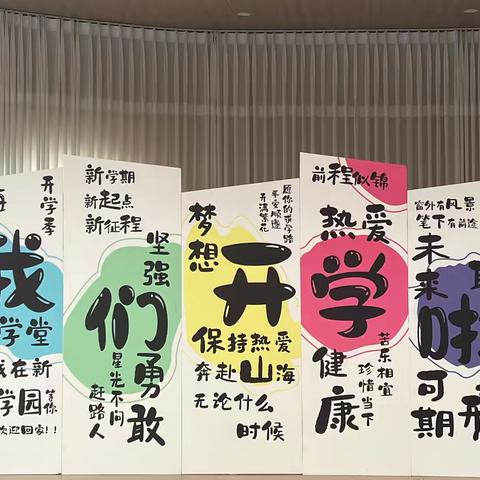 开学季
我
学堂
在新
学园
等你
欢迎回家!!
新学期
新起点
新征程
坚强
们
勇敢
星光不问
赶路人
愿你的求学路
平安顺遂
开满繁花
梦想
开
保持热爱
奔赴山海
无论什么
时候
前程似锦
热爱
学
健康
苦乐相宜
珍惜当下
窗外有风景
笔下有前途
未来
啦
可期